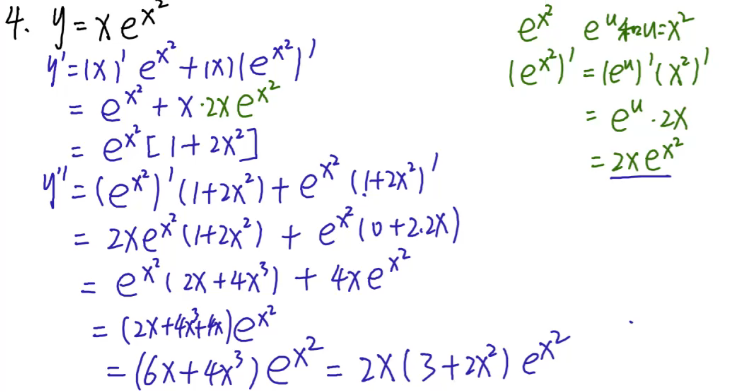 4. y = x e^{x^2}
y' = (x)' e^{x^2} + (x)(e^{x^2})'
= e^{x^2} + x·2x e^{x^2}
= e^{x^2}[1+2x^2]
y'' = (e^{x^2})'(1+2x^2) + e^{x^2}(1+2x^2)'
= 2x e^{x^2}(1+2x^2) + e^{x^2}(0+2·2x)
= e^{x^2}(2x+4x^3) + 4x e^{x^2}
= (2x+4x^3+4x) e^{x^2}
= (6x+4x^3) e^{x^2} = 2x(3+2x^2) e^{x^2}
e^{x^2} e^u 和 u=x^2
(e^{x^2})' = (e^u)'(x^2)'
= e^u · 2x
= 2x e^{x^2}